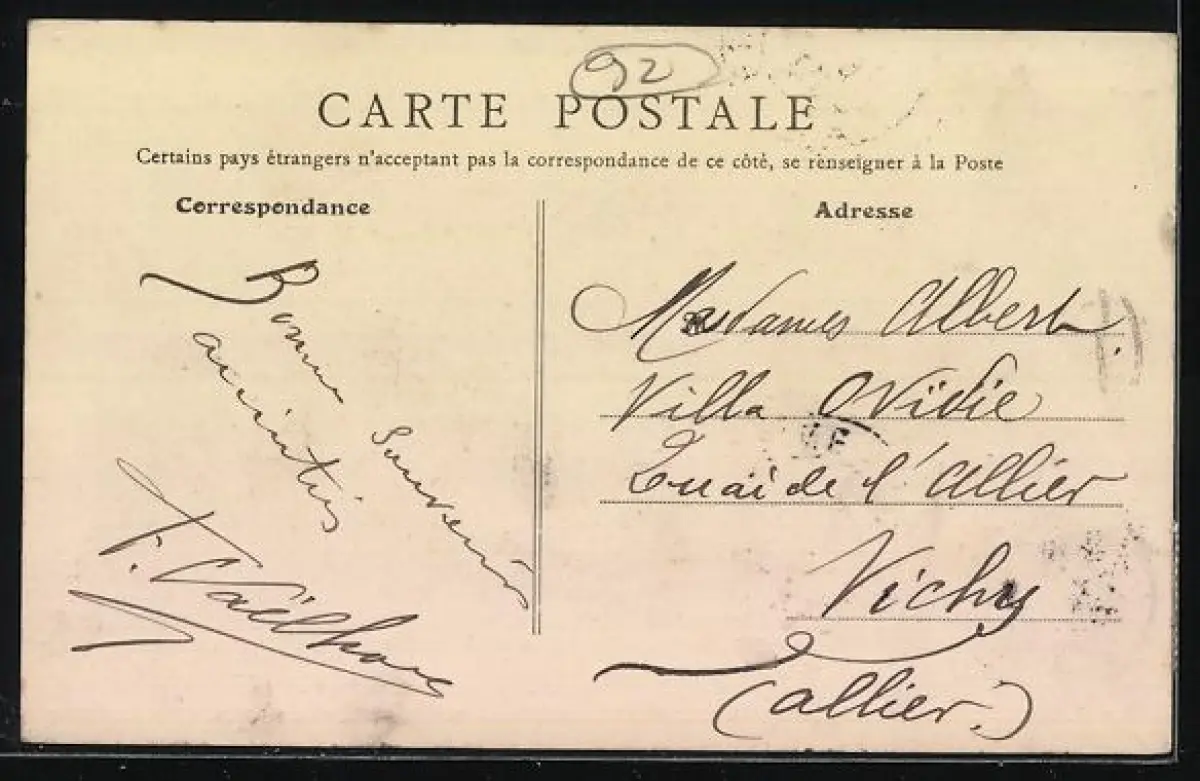 92
CARTE POSTALE
Certains pays étrangers n'acceptant pas la correspondance de ce côté, se renseigner à la Poste
Correspondance
Adresse
Bonne Souvenir
amitiés
F.
Mesdames Albert
Villa Ovidie
Quai de l'Allier
Vichy
(Allier.)